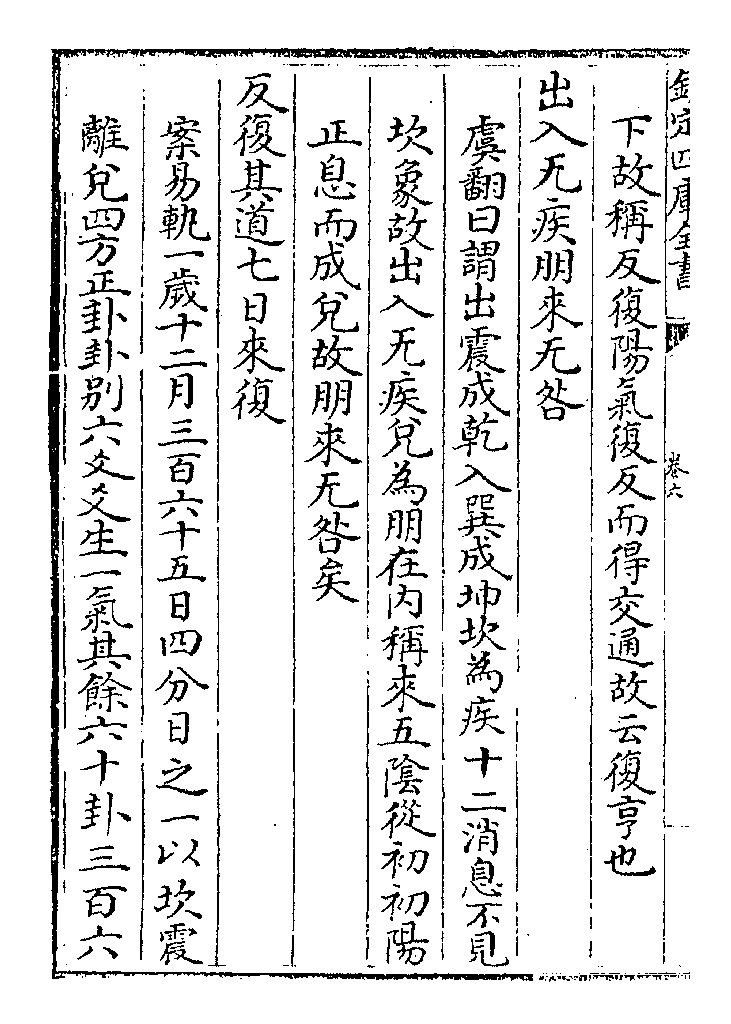 欽定四庫全書
卷六
下故稱反復陽氣復反而得交通故云復亨也
出入无疾朋來无咎
虞翻曰謂出震成乾入巽成坤坎為疾十二消息不見
坎象故出入无疾兌為朋在内稱來五陰從初初陽
正息而成兌故朋來无咎矣
反復其道七日來復
案易軌一歲十二月三百六十五日四分日之一以坎震
離兌四方正卦卦别六爻爻生一氣其餘六十卦三百六